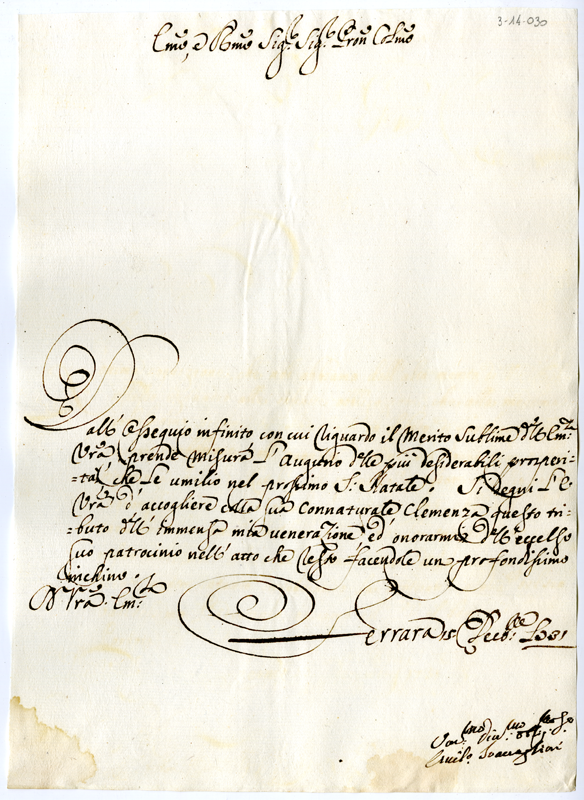 3-14-030
Em̃o, e R̃mo Sig.r Sig.r Pron̄ Colm̄o
Dall' Ossequio infinito con cui riguardo il Merito Sublime dell' Em.za
Vr̃a prende misura l'Augurio delle più desiderabili prosperi-
=tà, che Le umilio nel prossimo S. Natale. Si degni l'E.
Vr̃a d'accogliere colla sua Connaturale Clemenza questo tri-
=buto dell' immensa mia venerazione, ed onorarmi dell' eccelso
suo patrocinio nell' atto che resto facendole un profondissimo
inchino.
Vr̃a Em.za
Ferrara Decb.re